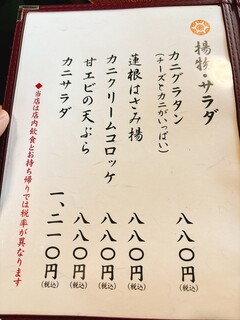 揚物・サラダ
カニグラタン 八八〇円(税込)
(チーズとカニがいっぱい)
蓮根はさみ揚 八八〇円(税込)
カニクリームコロッケ 八八〇円(税込)
甘エビの天ぷら 八八〇円(税込)
カニサラダ 一、二一〇円(税込)
◆当店は店内飲食とお持ち帰りでは税率が異なります